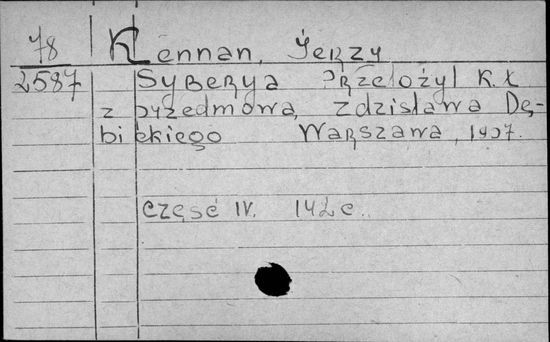 78 Kennan, Jerzy
2587 Syberya Przełożył K. Ł
z przedmową Zdzisława Dę-
bickiego Warszawa, 1907.
Część IV. 142 c.